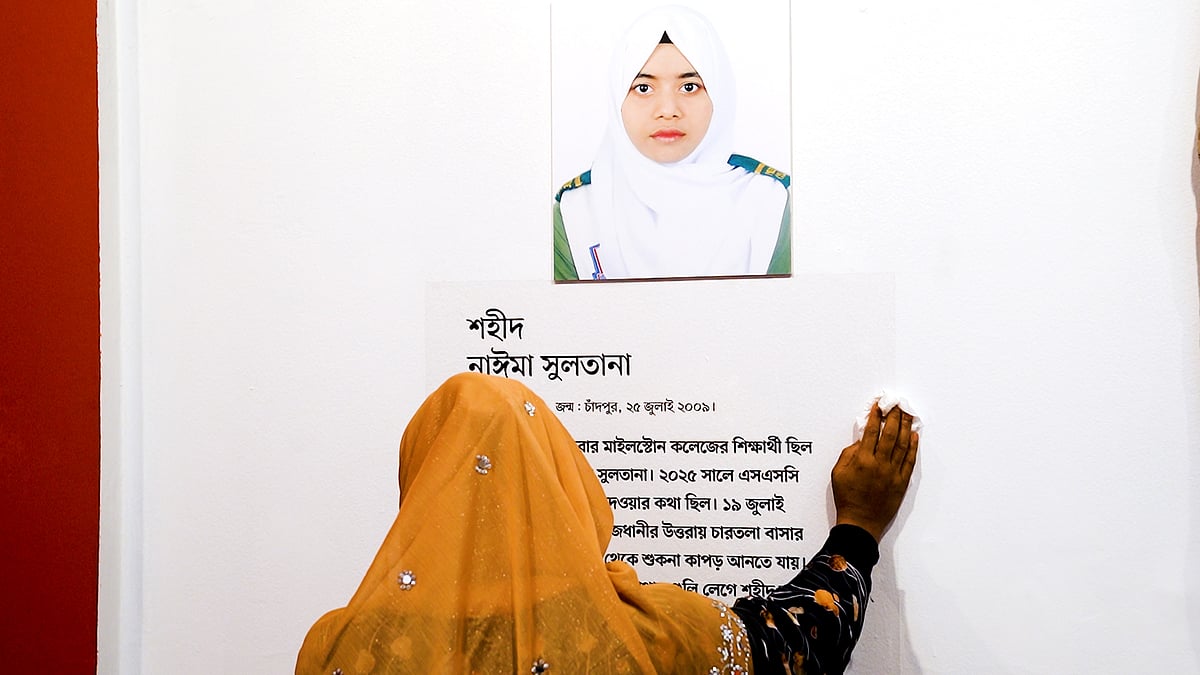 শহীদ
নাঈমা সুলতানা
জন্ম : চাঁদপুর, ২৫ জুলাই ২০০৯।
মাইলস্টোন কলেজের শিক্ষার্থী ছিল
সুলতানা। ২০২৫ সালে এসএসসি
দেওয়ার কথা ছিল। ১৯ জুলাই
উত্তরায় চারতলা বাসার
থেকে শুকনা কাপড় আনতে যায়।
লেগে শহীদ